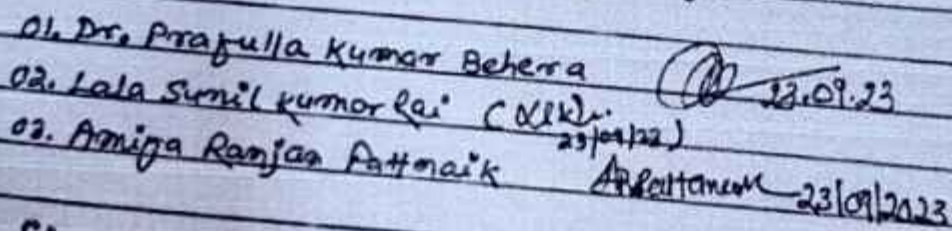 01. Dr. Prafulla Kumar Behera 23.09.23
02. Lala Sunil Kumar Rai
03. Amiya Ranjan Pattnaik 23/09/2023